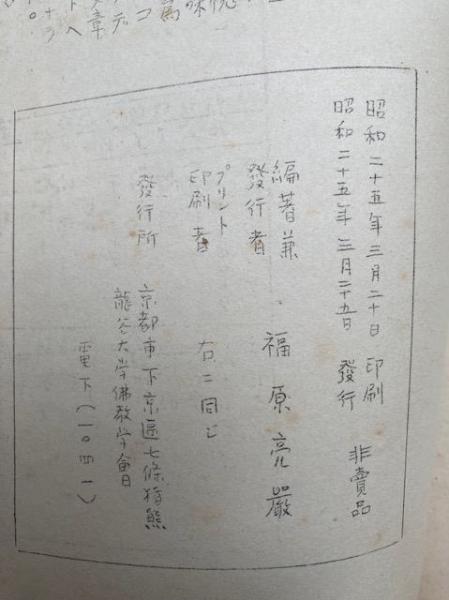 昭和二十五年三月二十日 印刷
昭和二十五年三月二十五日 發行 非賣品
編著兼
發行者 福原亮嚴
プリント
印刷者 右ニ同じ
發行所 京都市下京區七條猪熊
龍谷大学佛教学會
電下(一〇四一)